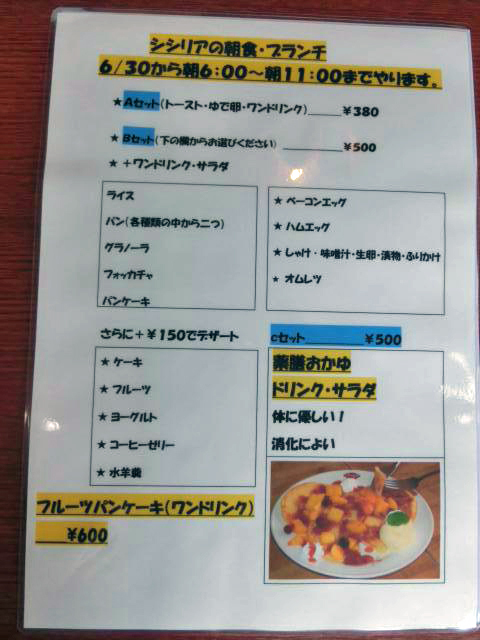 シシリアの朝食・ブランチ
6/30から朝6:00～朝11:00までやります。
★Aセット(トースト・ゆで卵・ワンドリンク)______¥380
★Bセット(下の欄からお選びください)__________¥500
★ +ワンドリンク・サラダ
ライス
パン(各種類の中から二つ)
グラノーラ
フォッカチャ
パンケーキ
★ ベーコンエッグ
★ ハムエッグ
★ しゃけ・味噌汁・生卵・漬物・ふりかけ
★ オムレツ
さらに+¥150でデザート
★ ケーキ
★ フルーツ
★ ヨーグルト
★ コーヒーゼリー
★ 水羊羹
cセット__________¥500
薬膳おかゆ
ドリンク・サラダ
体に優しい!
消化によい
フルーツパンケーキ(ワンドリンク)
____¥600